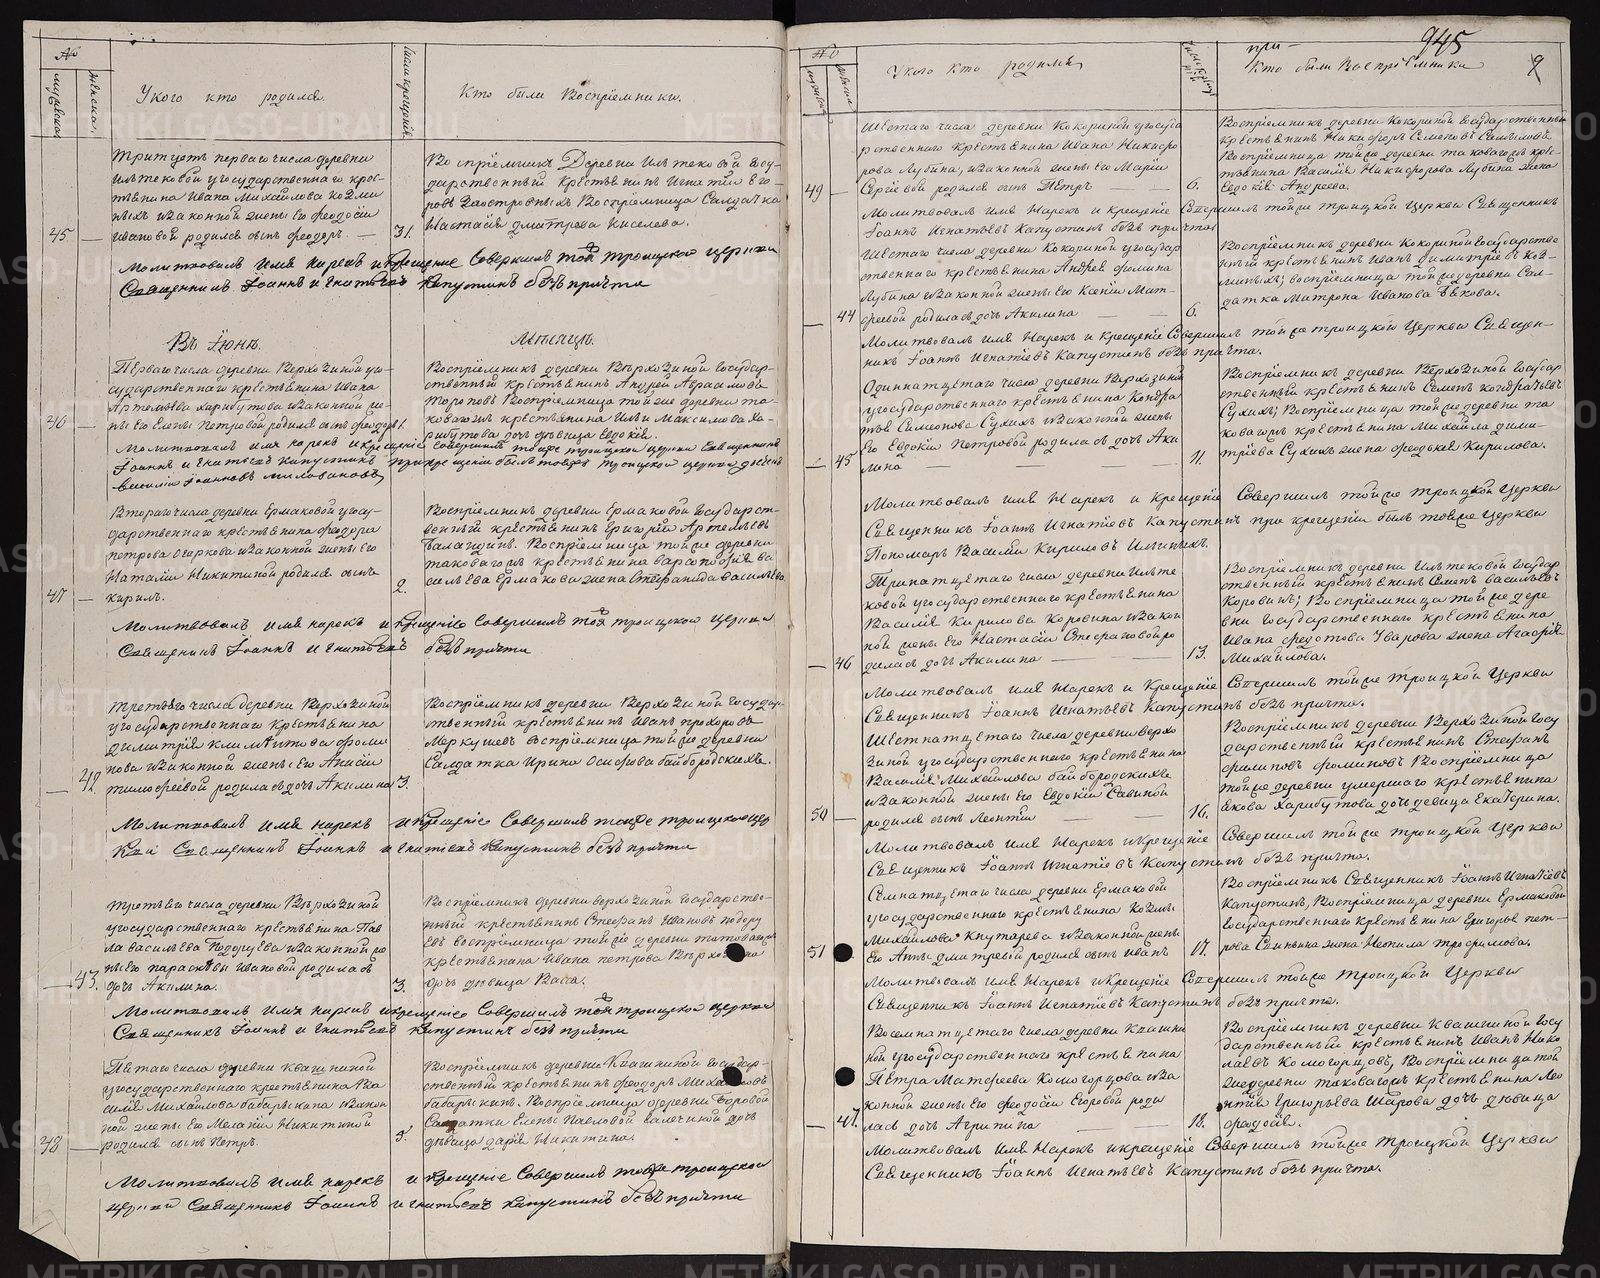 №
мужеска
женска.
У кого кто родился.
Число крещенія.
Кто были Воспріемники.
Тритцеть перваго числа деревни
Ильтековой у государственнаго крес-
тьянина Ивана Михайлова Козми
ныхъ изаконной жены его Феодосіи
45 — Ивановой родился сынъ Феодоръ. — 31.
Воспріемникъ Деревни Ильтековой Госу-
дарственный Крестьянинъ Игнатій Его-
ровъ Заостровныхъ Воспріемница Салдатка
Настасія Дмитріева Киселева.
Молитвовалъ имя нарекъ и Крещеніе Совершилъ той Троицкой церкви
Священникъ Іоаннъ Игнатьевъ Капустинъ безъ причта
Въ Іюнѣ. Мѣсяцѣ.
Перваго числа деревни Верхозиной у го-
сударственнаго крестьянина Ивана
Артемьева Харибутова изаконной же-
46 — ны его Елены Петровой родился сынъ Феодоръ 1.
Воспріемникъ деревни Верхозиной Государ-
ственный Крестьянинъ Андрей Абрасимовъ
Тороповъ Воспріемница тойже деревни та-
коваго жъ крестьянина Ильи Максимова Ха-
рибутова дочь дѣвица Евдокія.
Молитвовалъ имя нарекъ и Крещеніе Совершилъ тойже троицкой церкви Священникъ
Іоаннъ Игнатьевъ Капустинъ при крещеніи былъ тойже троицкой церкви дьячекъ
Василій Іоанновъ Миловановъ
Втораго числа деревни Ермаковой у госу-
дарственнаго крестьянина Феодора
Петрова Огаркова изаконной жены его
Наталіи Никитиной родился сынъ
47 — Кирилъ. 2.
Воспріемникъ деревни Ермаковой Государст-
венный крестьянинъ Григорій Артемьевъ
Баландинъ. Воспріемница тойже деревни
таковаго жъ крестьянина Варѳоломія Ва
сильева Ермакова жена Стефанида Васильева
Молитвовалъ имя нарекъ и Крещеніе Совершилъ той троицкой церкви
Священникъ Іоаннъ Игнатьевъ безъ причта
Третьяго числа деревни Верхозиной
у государственнаго Крестьянина
Димитрія Климантова Фоми
нова изаконной жены его Анисіи
— 42 Тимофѣевой родилась дочь Акилина 3.
Воспріемникъ деревни Верхозиной Государ-
ственный крестьянинъ Иванъ Прохоровъ
Меркушевъ воспріемница тойже деревни
Салдатка Ирина Осифова Байбородскихъ.
Молитвовалъ имя нарекъ и Крещеніе Совершилъ тойже троицкой цер
кви Священникъ Іоаннъ Игнатьевъ Капустинъ безъ причта
Третьяго числа деревни Верхозиной
у государственнаго крестьянина Пав
ла Васильева Подоруева изаконной же
ны его Параскѣвы Ивановой родилась
— 43. дочь Акилина. 3.
Воспріемникъ деревни верхозиной Государстве-
нный крестьянинъ Стефанъ Ивановъ Подору
евъ воспріемница тойже деревни таковаго жъ
крестьянина Ивана Петрова
дочь дѣвица Васса.
Молитвовалъ имя нарекъ и Крещеніе Совершилъ той троицкой церкви
Священникъ Іоаннъ Игнатьевъ Капустинъ безъ причта
Пятаго числа деревни Квашниной
у государственнаго крестьянина Ва
силія Михайлова Бабарыкина изакон
ной жены его Меланіи Никитиной
48 — родился сынъ Петръ. 5.
Воспріемникъ деревни Квашниной Государ-
ственный крестьянинъ Феодоръ
Бабарыкинъ. Воспріемница деревни Боровой
Салдатки Елены Павловой дочь
дѣвица Дарія Никитина.
Молитвовалъ имя нарекъ и Крещеніе Совершилъ тойже троицкой
церкви Священникъ Іоаннъ Игнатьевъ Капустинъ безъ причта
945
9
№
У кого кто родился
при-
Кто были Воспріемники
Шестаго числа деревни Кокориной у госуда
рственнаго Крестьянина Ивана Никифо
рова Лубина, изаконной жены его Маріи
49 Сергіевой родился сынъ Петръ — — 6.
Воспріемникъ деревни Кокориной Государственный
крестьянинъ Никифоръ Семеновъ
Воспріемница тойже деревни таковаго жъ крес-
тьянина Василія Никифорова Лубина жена
Евдокія Андреева.
Молитвовалъ имя Нарекъ и Крещеніе Совершилъ тойже троицкой Церкви Священникъ
Іоаннъ Игнатьевъ Капустинъ безъ причта
Шестаго числа деревни Кокориной у государ
ственнаго крестьянина Андрея Фомина
Лубина изаконной жены его Ксеніи Мат-
— 44 фѣевой родилась дочь Акилина — 6.
Воспріемникъ деревни Кокориной Государстве
нный крестьянинъ Иванъ Димитріевъ Коз-
миныхъ; воспріемница тойже деревни Сал-
датка Матрона Иванова Бѣкова.
Молитвовалъ имя Нарекъ и Крещеніе Совершилъ тойже троицкой Церкви Священ-
никъ Іоаннъ Игнатіевъ Капустинъ безъ причта.
Одиннатцетаго числа деревни Верхозиной
у государственнаго крестьянина Кондра
тья Симеонова Сухихъ изаконной жены
его Евдокіи Петровой родилась дочь Аки
— 45 лина — — 11.
Воспріемникъ деревни Верхозиной Государ
ственный крестьянинъ Семенъ Кондратьевъ
Сухихъ; Воспріемница тойже деревни та
коваго жъ крестьянина Михайла Дими-
тріева Сухихъ жена Феодосія Кирилова.
Молитвовалъ имя Нарекъ и Крещеніе Совершилъ тойже троицкой Церкви
Священникъ Іоаннъ Игнатіевъ Капустинъ при крещеніи былъ тойже Церкви
Пономарь Василій Кириловъ Ильиныхъ.
Тринатцетаго числа деревни Ильте
ковой у государственнаго крестьянина
Василія Кирилова Коровина изакон
ной жены его Настасіи Стефановой ро
— 46 дилась дочь Акилина — — 13.
Воспріемникъ деревни Ильтековой Государ
ственный крестьянинъ Семенъ Васильевъ
Коровинъ; Воспріемница тойже дере
вни Государственнаго крестьянина
Ивана Федотова Уварова жена Агафія
Михайлова.
Молитвовалъ имя Нарекъ и Крещеніе Совершилъ тойже Троицкой Церкви
Священникъ Іоаннъ Игнатьевъ Капустинъ безъ причта.
Шестнатцетаго числа деревни Верхо
зиной у государственнаго крестьянина
Василія Михайлова Байбородскихъ
изаконной жены его Евдокіи Савиной
50 — родился сынъ Леонтій — 16.
Воспріемникъ деревни Верхозиной Госу
дарственный крестьянинъ Стефанъ
Филиповъ Фоминовъ Воспріемница
тойже деревни умершаго крестьянина
Якова Харибутова дочь девица Екатерина.
Молитвовалъ имя Нарекъ и Крещеніе Совершилъ тойже троицкой Церкви
Священникъ Іоаннъ Игнатіевъ Капустинъ безъ причта.
Семнатцетаго числа деревни Ермаковой
у государственнаго крестьянина Козмы
Михайлова Кнутарева изаконной жены
51 его Анны Дмитревой родился сынъ Иванъ 17.
Воспріемникъ Священникъ Іоаннъ Игнатіевъ
Капустинъ, Воспріемница деревни Ермаковой
Государственнаго крестьянина Григорья Пет-
рова жена Неонила Трофимова.
Молитвовалъ имя Нарекъ и Крещеніе Совершилъ тойже троицкой Церкви
Священникъ Іоаннъ Игнатіевъ Капустинъ безъ причта.
Восемнатцетаго числа деревни Квашни
ной у государственнаго крестьянина
Петра Матфеева Комогорцова иза
конной жены его Феодосіи Егоровой роди
— 47 лась дочь Агрипина — 18.
Воспріемникъ деревни Квашниной Госу
дарственный крестьянинъ Иванъ Нико
лаевъ Комогорцовъ, Воспріемница той
же деревни таковаго жъ крестьянина Лео
нтія Григорьева Шарова дочь дѣвица
Феодосія.
Молитвовалъ имя Нарекъ и крещеніе Совершилъ тойже Троицкой Церкви
Священникъ Іоаннъ Игнатьевъ Капустинъ безъ причта.
METRIKI.GASO-URAL.RU